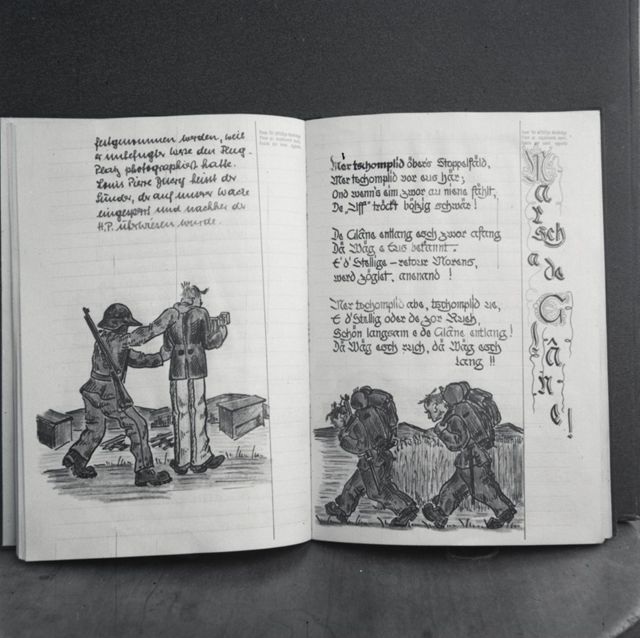 festgenommen werden, weil
er unbefugter Weise den Flug-
Platz photographiert hatte.
Louis Pierre heisst der
Sünder, der auf unserer Wache
eingesperrt und nachher der
H.P. überwiesen wurde.
Mer tschomplid öbers Stoppelfäld,
Mer tschomplid vor eus här;
Ond wenn's eim zwor au niene fählt,
De „Aff" tröckt bötzig schwär!
De Glâne entlang esch zwor afang
Dä Wäg e Eus bekannt.
E d'Stellige – retour Morens,
werd zöglet, anenand!
Mer tschomplid abe, tschomplid ue,
E d'Stellig oder de zor Rueh,
Schön langsam e de Glâne entlang!
Dä Wäg esch ruch, dä Wäg esch
lang!!
Marsch a de Glâne!